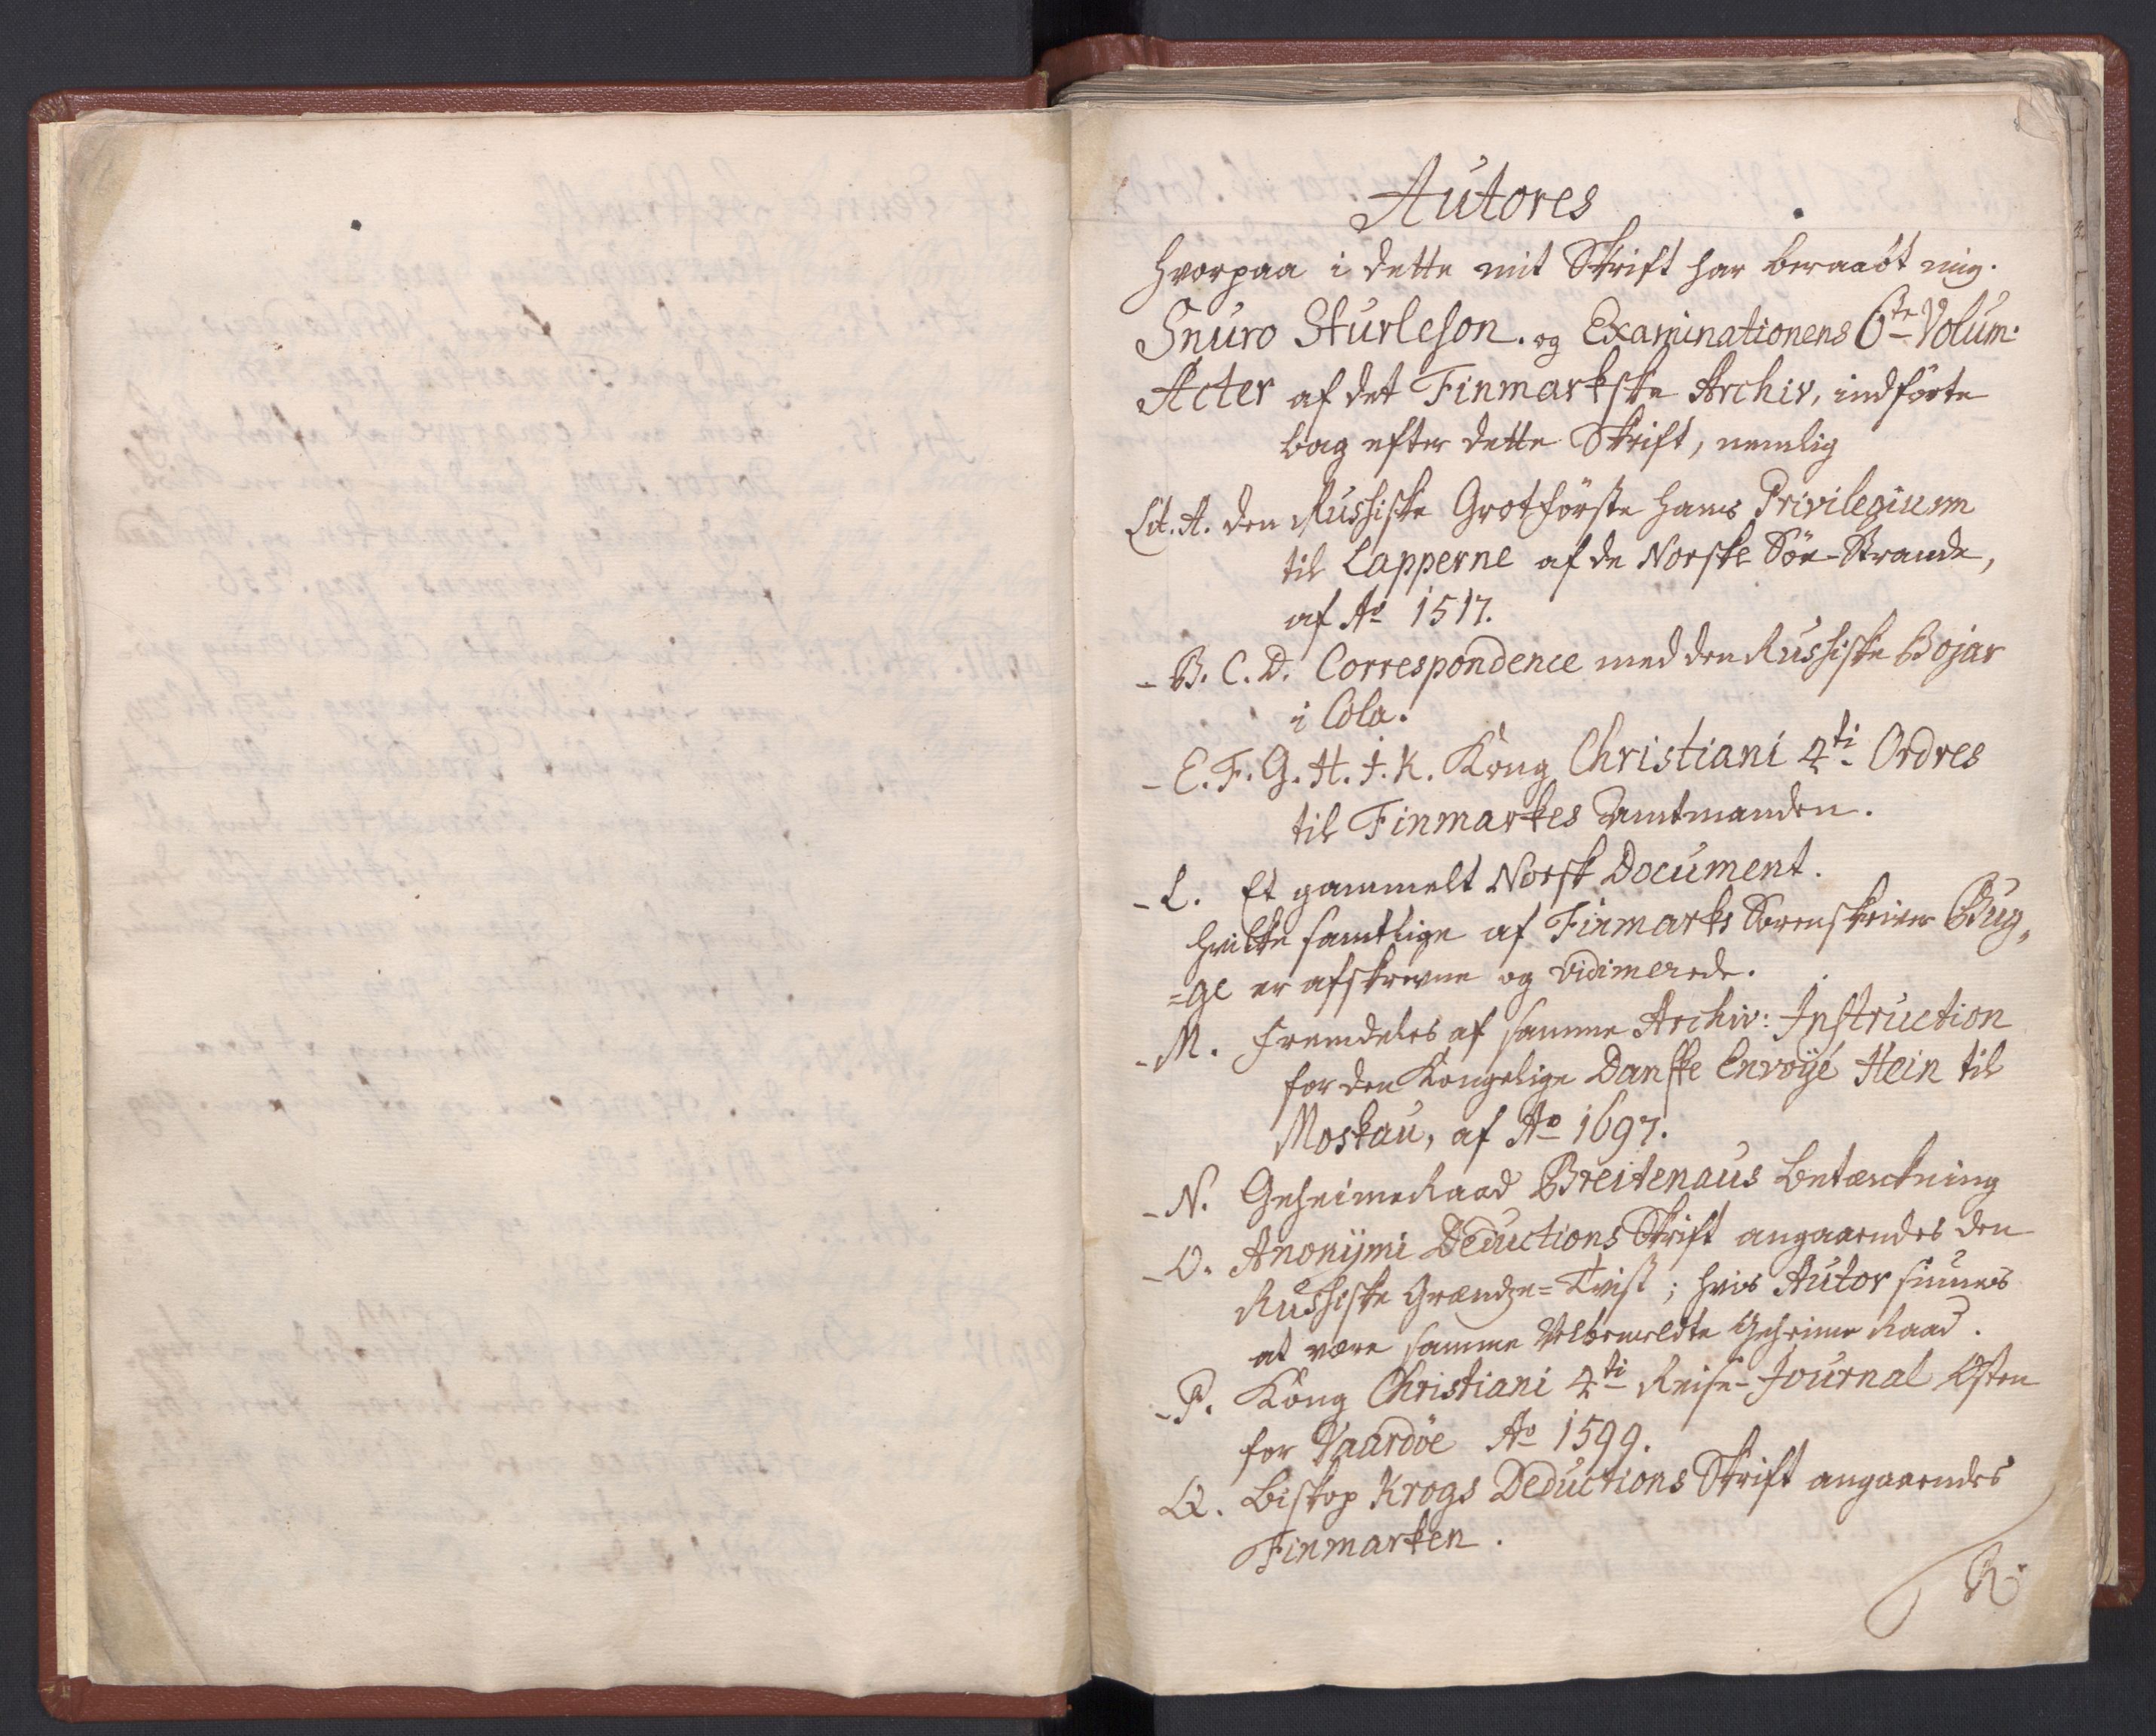 Autores
hvorpaa i dette mit Skrift har beraabt mig.
Snuro Sturleson. og Examinationens 6te Volum:
Acter af det Finmarkske Archiv, indførte
bag efter dette Skrift, nemlig
Lit. A. den Russiske Grotførste hans Privilegium
til Lapperne af de Norske Söe-Strande,
af Ao 1517.
- B. C. D. Correspondence med den Russiske Bojar
i Cola.
- E. F. G. H. I. K. Kong Christiani 4ti Ordres
til Finmarkes Amtmanden.
- L. Et gammelt Norsk Document.
hvilke samtlige af Finmarks Sorenskriver Bug,
=ge er afskrevne og vidimerede.
- M. Fremdeles af samme Archiv: Instruction
for den Kongelige Danske Envoÿé Hein til
Moskau, af Ao 1697.
- N. Geheimeraad Breitenaus betænkning
- O. Anonÿmi Deductions Skrift angaaendes den
Russiske Grændze=Tvist; hvis Autor siunes
at være samme Velbemeldte Geheime Raad.
- P. Kong Christiani 4ti Reise-Journal Østen
for Vaardöe Ao 1599.
Q. Biskop Krogs Deductions Skrift angaaendes
Finmarken.
R.